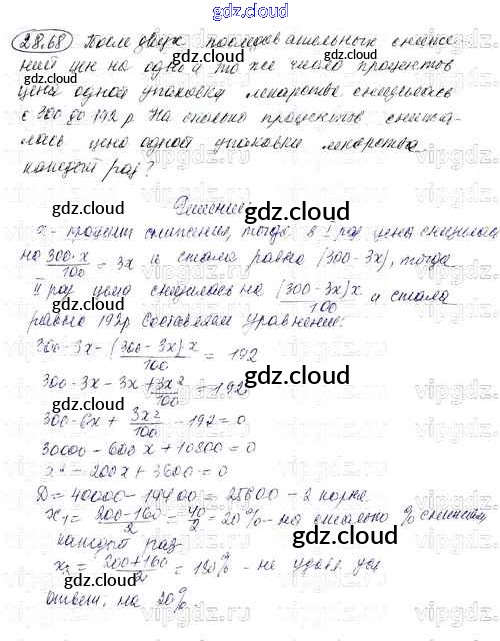 gdz.cloud
28.68 После двух последовательных снижений цен на одно и то же число процентов
цена одной упаковки лекарства снизилась
с 300 до 192 р На сколько процентов снижалась цена одной упаковки лекарства
каждый раз?
Решение:
x - процент снижения, тогда в I раз цена снизилась
на 300·x/100 = 3x и стала равна (300-3x), тогда
II раз цена снизилась на (300-3x)x/100 и стала
равна 192р Составляем уравнение:
300-3x-(300-3x)x/100 = 192
300-3x-3x+3x²/100 = 192
300-6x+3x²/100-192=0
30000-600x+10800=0
x²-200x+3600=0
D=40000-14400=25600-2 корня
x₁=200-160/2=40/2=20%-на столько % снижали
каждый раз
x₂=200+160/2=180%-не удовл усл
ответ, на 20%